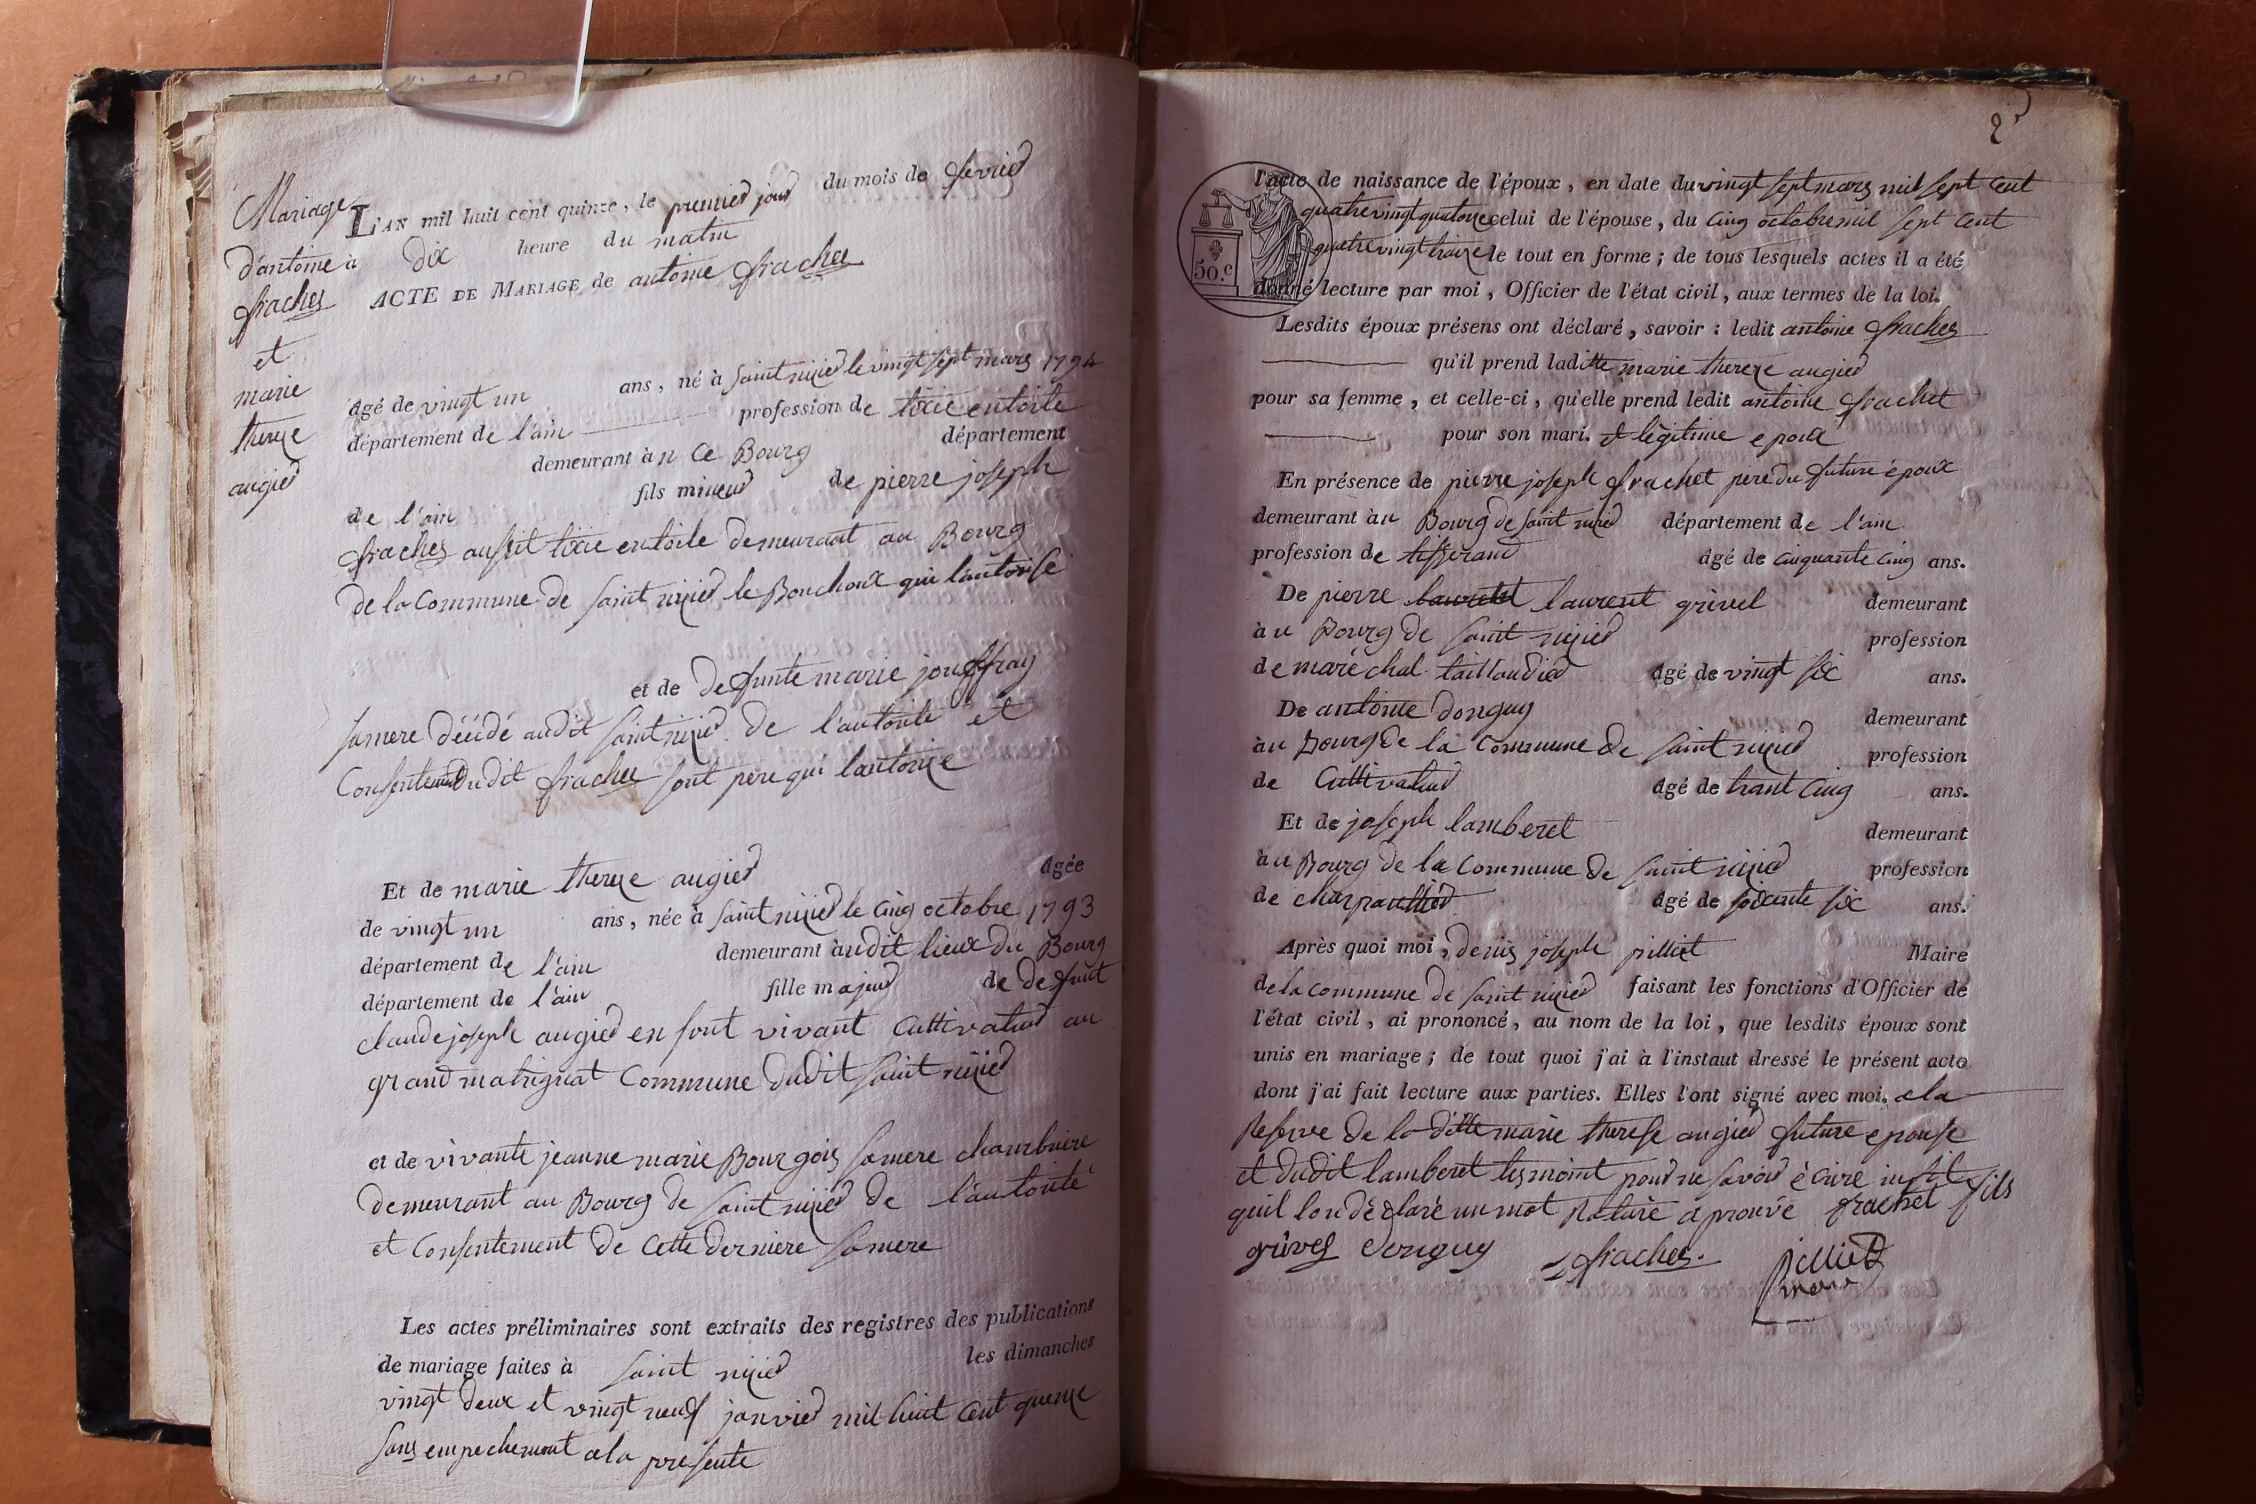 Mariage
d'antoine
frachet
et
marie
thereze
augier
L'AN mil huit cent quinze, le premier jour du mois de fevrier
à dix heure du matin
ACTE DE MARIAGE de antoine frachet
agé de vingt un ans, né à saint nizier le vingt sept mars 1794
département de l'ain profession de tixie entoile
demeurant àu ce Bourg département
de l'ain fils mineur de pierre joseph
frachet aussit tixie entoile demeurant au Bourg
de la commune de saint nizier le Bouchoux qui l'autorise
et de defunte marie jouffray
samere déédé audit saint nizier de l'autorite et
Consentement dudit frachet sont père qui lautorize
Et de marie thereze augier agée
de vingt un ans, née à saint nizier le cinq octobre 1793
département de l'ain demeurant àudit lieux du Bourg
département de l'ain fille majeur de defunt
claude joseph augier en sont vivant Cultivateur au
grand matrignat Commune dudit saint nizier
et de vivante jeanne marie Bourgois samere chambriere
demeurant au Bourg de saint nizier de l'autorité
et Consentement de Cette derniere samere
Les actes préliminaires sont extraits des registres des publications
de mariage faites à saint nizier les dimanches
vingt deux et vingt neuf janvier mil huit Cent quenze
sans empechement ala presente
2
50.c
l'acte de naissance de l'époux, en date du vingt sept mars mil sept cent
quatre vingt quatorze celui de l'épouse, du cinq octobre mil sept cent
quatre vingt traize le tout en forme; de tous lesquels actes il a été
donné lecture par moi, Officier de l'état civil, aux termes de la loi.
Lesdits époux présens ont déclaré, savoir: ledit antoine frachet
qu'il prend laditte marie thereze augier
pour sa femme, et celle-ci, qu'elle prend ledit antoine frachet
pour son mari. et légitime epoux
En présence de pierre joseph frachet pere du future époux
demeurant àu Bourg de saint nizier département de l'ain
profession de tisserand agé de cinquante cinq ans.
De pierre laurent grivel demeurant
àu Bourg de saint nizier profession
de maréchal taillandier agé de vingt six ans.
De antoine donguy demeurant
àu Bourg de la Commune de saint nizier profession
de Cultivateur agé de trant Cinq ans.
Et de joseph lamberet demeurant
àu Bourg de la Commune de saint nizier profession
de charpanttier agé de soixante six ans.
Après quoi moi, denis joseph pilliet Maire
de la commune de saint nizier faisant les fonctions d'Officier de
l'état civil, ai prononcé, au nom de la loi, que lesdits époux sont
unis en mariage; de tout quoi j'ai à l'instaut dressé le présent acte
dont j'ai fait lecture aux parties. Elles l'ont signé avec moi. ala
Reserve de la ditte marie therese augier future epouse
et dudit lamberet tesmoint pour ne savoir ècrire
quil lon déclaré un mot Raturé aprouvé frachet fils
grivel donguy frachet. Pilliet
maire